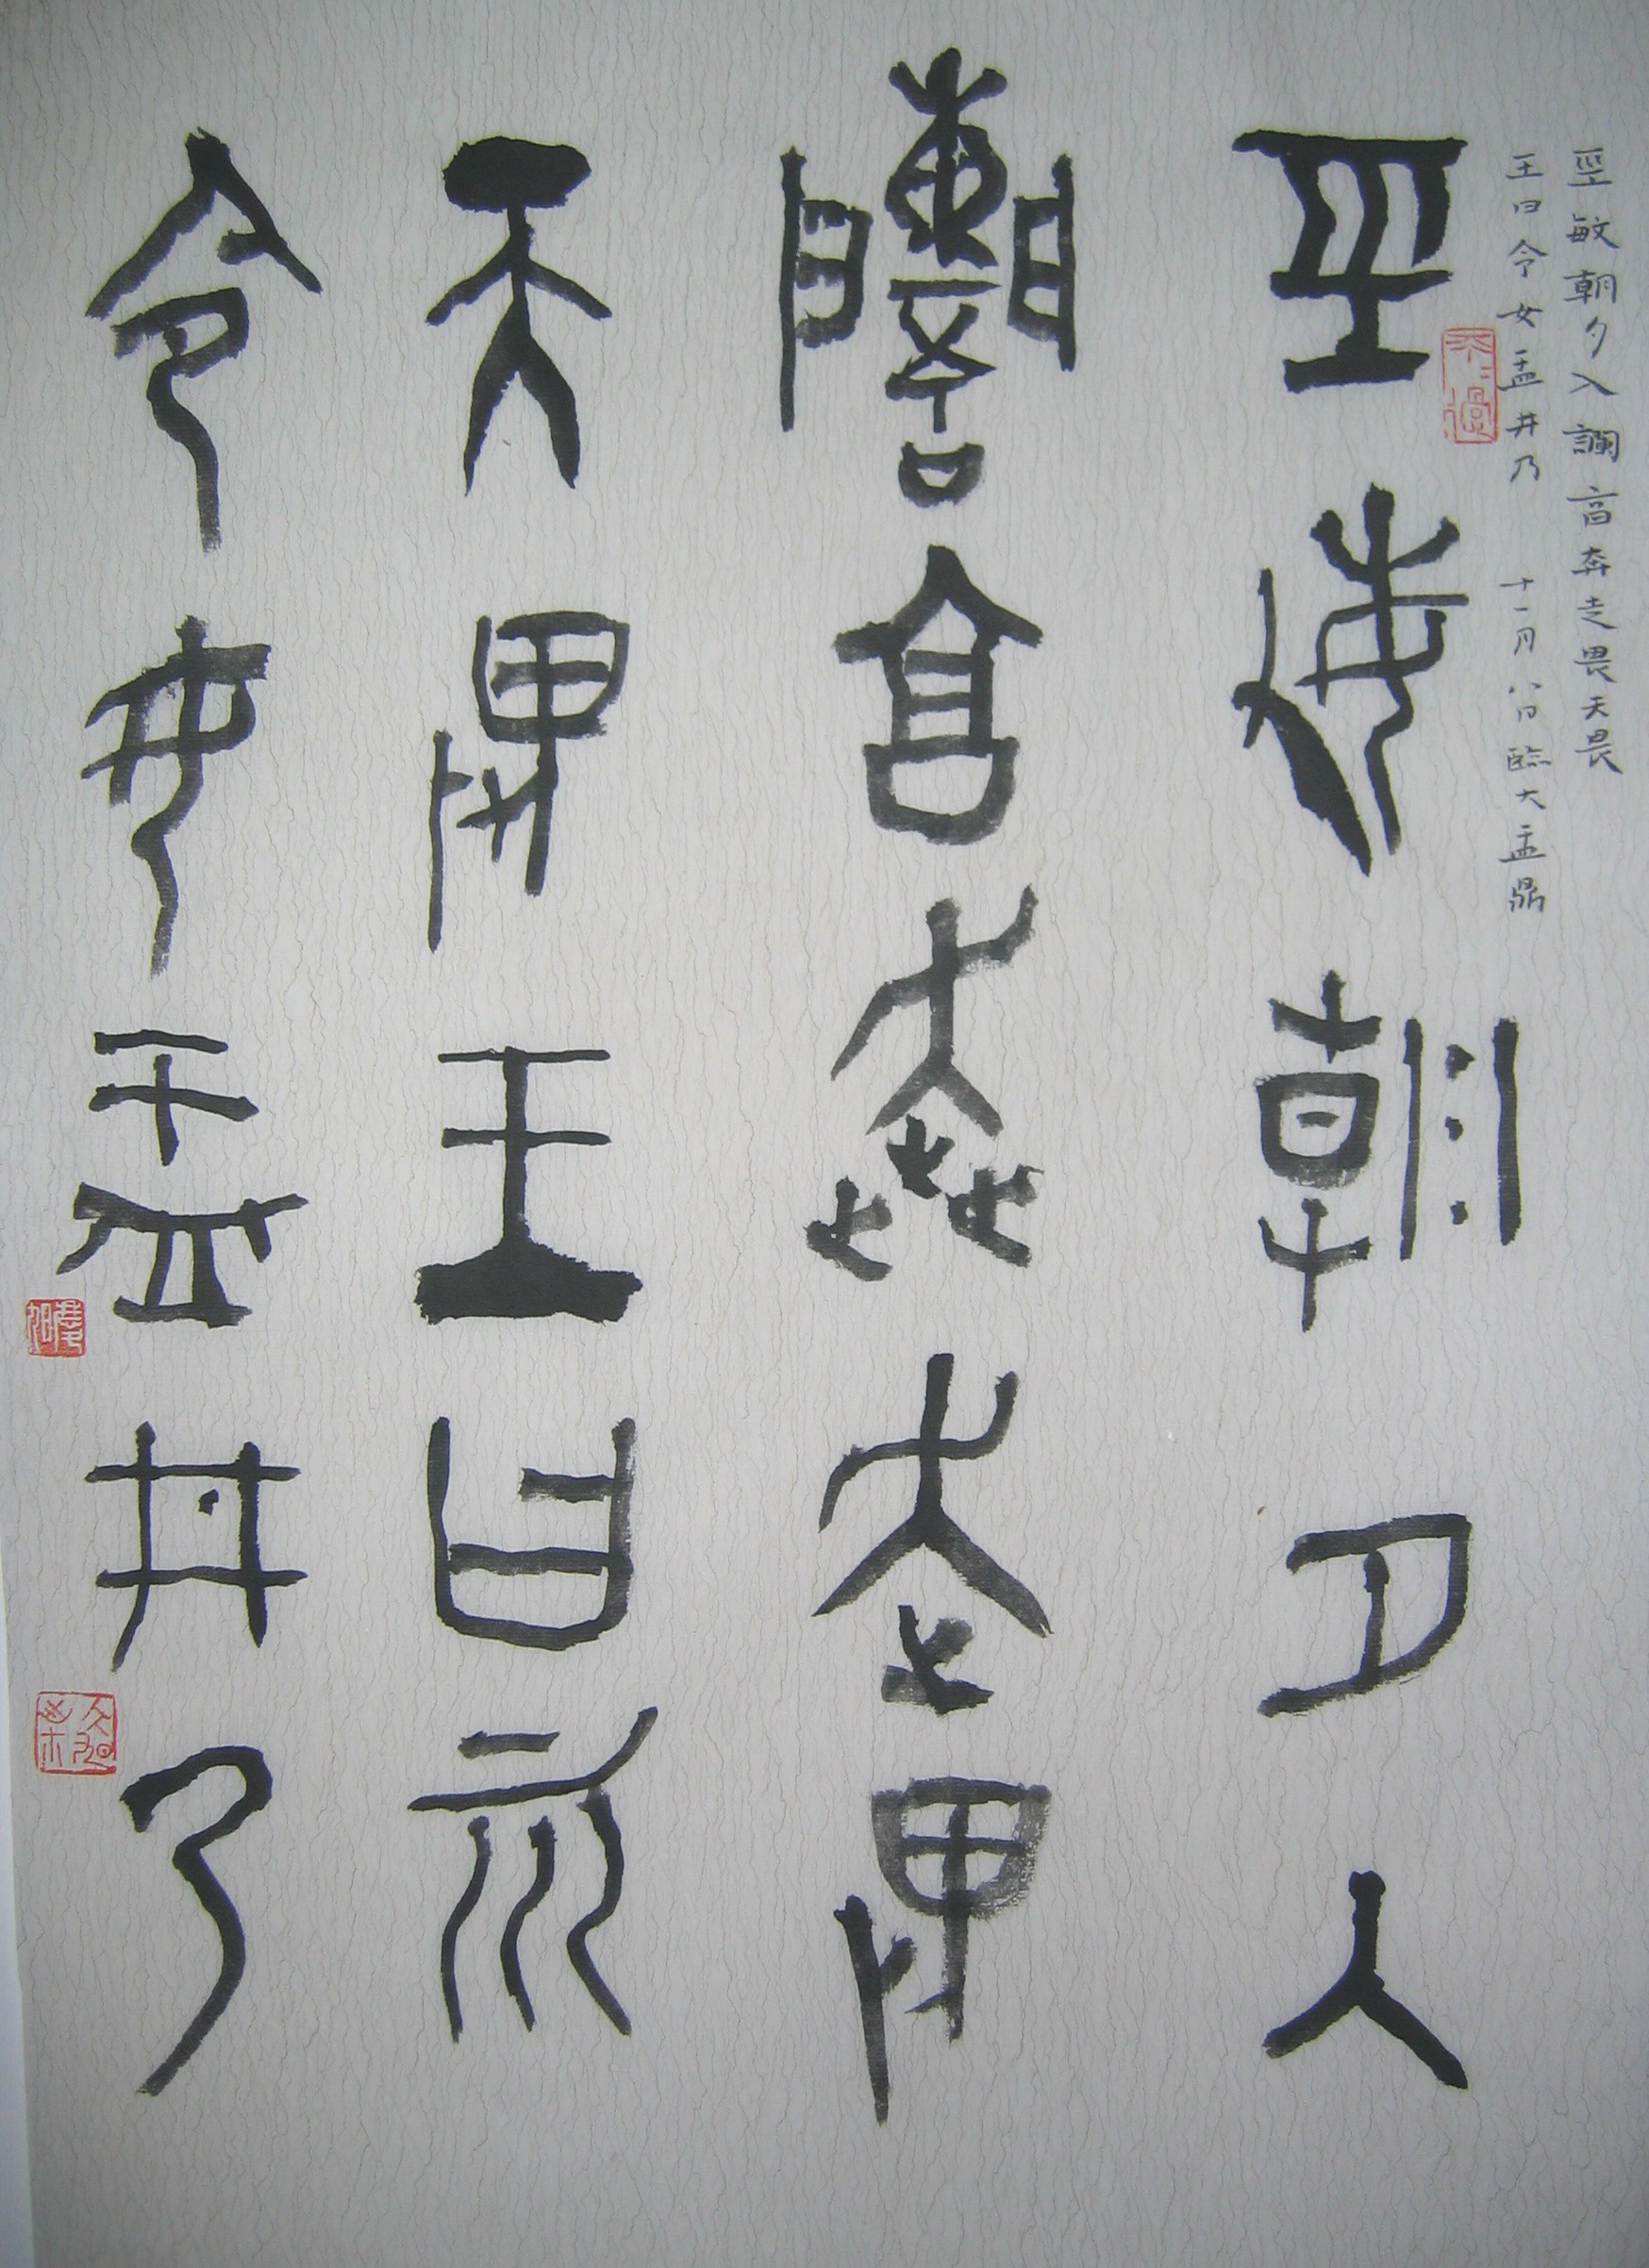 巠敏朝夕入讕亯奔走畏天畏
王曰令女盂井乃 十一月八日臨大盂鼎
巠敏朝夕入
讕亯奔走畏
天畏王曰
令女盂井乃